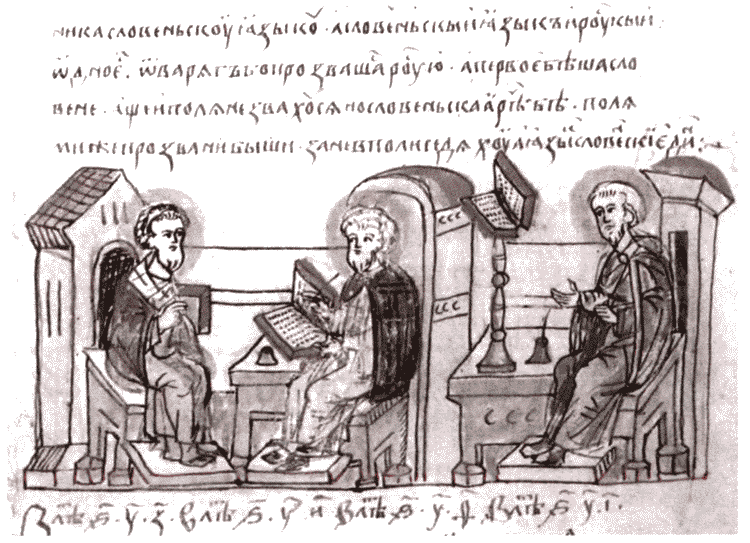 ника словеньскоу ꙗзыкоу · а словеньскыи ꙗзыкъ и роускыи
ѿдно е҃ · ѿ варягъ бо прозвашаⷭ роусью · а первое бѣша сло
вене · аще и полѧне звахоусѧ но словеньскаа рѣⷱ бѣ · полѧ
ми же прозвани быши · зане в поли седѧхоу ꙗзыⷦ словенскⷭїи едиⷩ:
В лѣⷮ ѕ҃ · у҃ · з҃ · В лѣⷮ ѕ҃ · у҃ · и҃ В лѣⷮ ѕ҃ · у҃ · ѳ҃ · В лѣⷮ ѕ҃ · у҃ · і҃ ·